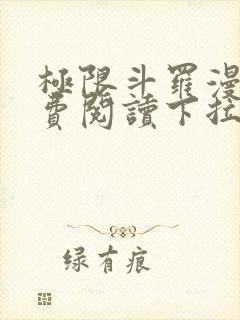 極限斗羅漫
費閱讀下拉
绿有痕